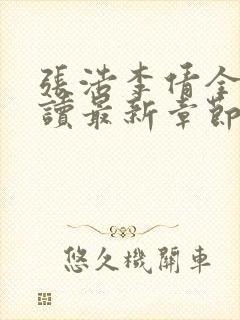 張浩李倩全
讀最新章節
悠久機關車